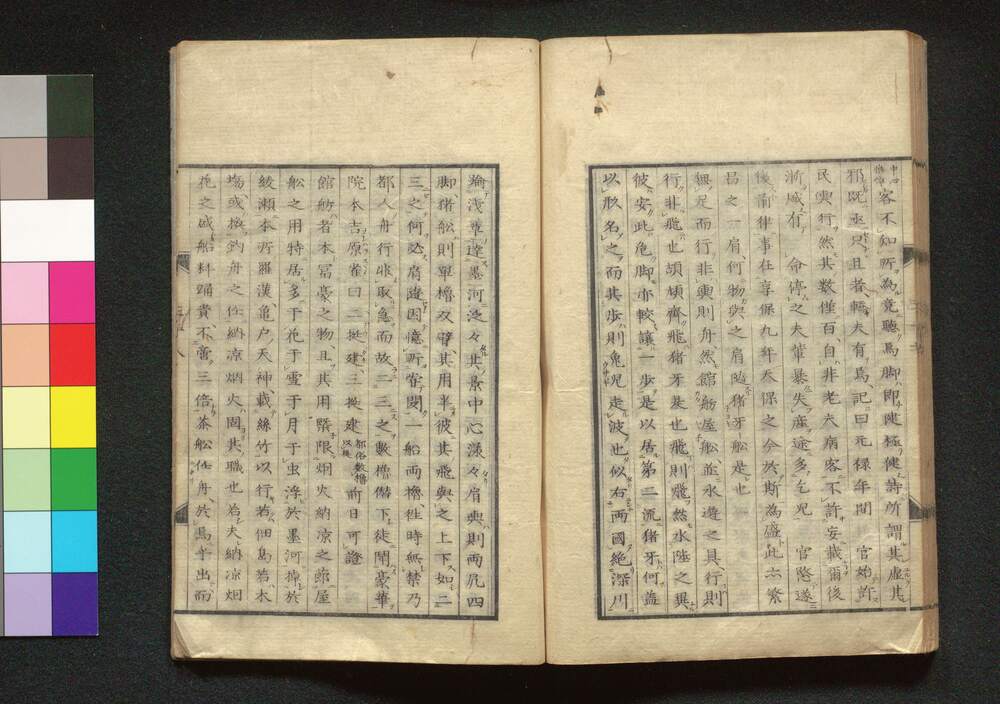 客不知所為竟聽焉脚即健極健詩所謂其虛其
邪既亟只且者轎夫有焉記曰元禄年間 官始許
民輿行然其數僅百自非老夫病客不許妄載爾後
漸城有 命停之夫輩暴失産途多乞児 官愍遂
復前律事在享保九年天保之今於斯為盛此亦繁
昌之一肩何物與之肩隨猪牙舩是也
無足而行非輿則舟然館舫屋舩並水遊之具行則
行非飛也頡頏齊飛猪牙是也飛則飛然水陸之異
彼安此危脚亦較讓一歩是以居第二流猪牙何蓋
以形名之而其歩則兎児走波也似右両國絶深川
淺草達墨河泛々其景中心漾々肩輿則両凥四
脚猪舩則単櫓双臂其用半彼其飛與之上下如二
三之何必肩隨因憶所嘗関一船両櫓徃時無禁乃
都人舟行非取急而故二三之數櫓儲下徒鬧豪華
院本吉原雀曰二挺建三挺建都俗數櫓以挺前日可證
館舫者本冨豪之物且其用槩限烟火納凉之節屋
舩之用特居多于花于雪于月于虫浮於墨河棹於
綾瀬本所羅漢亀戸天神載絲竹以行若佃島若木
塲或投釣舟之任納凉烟火固其職也若夫納凉烟
花之盛船料踊貴不啻三倍茶舩任舟於焉乎出而